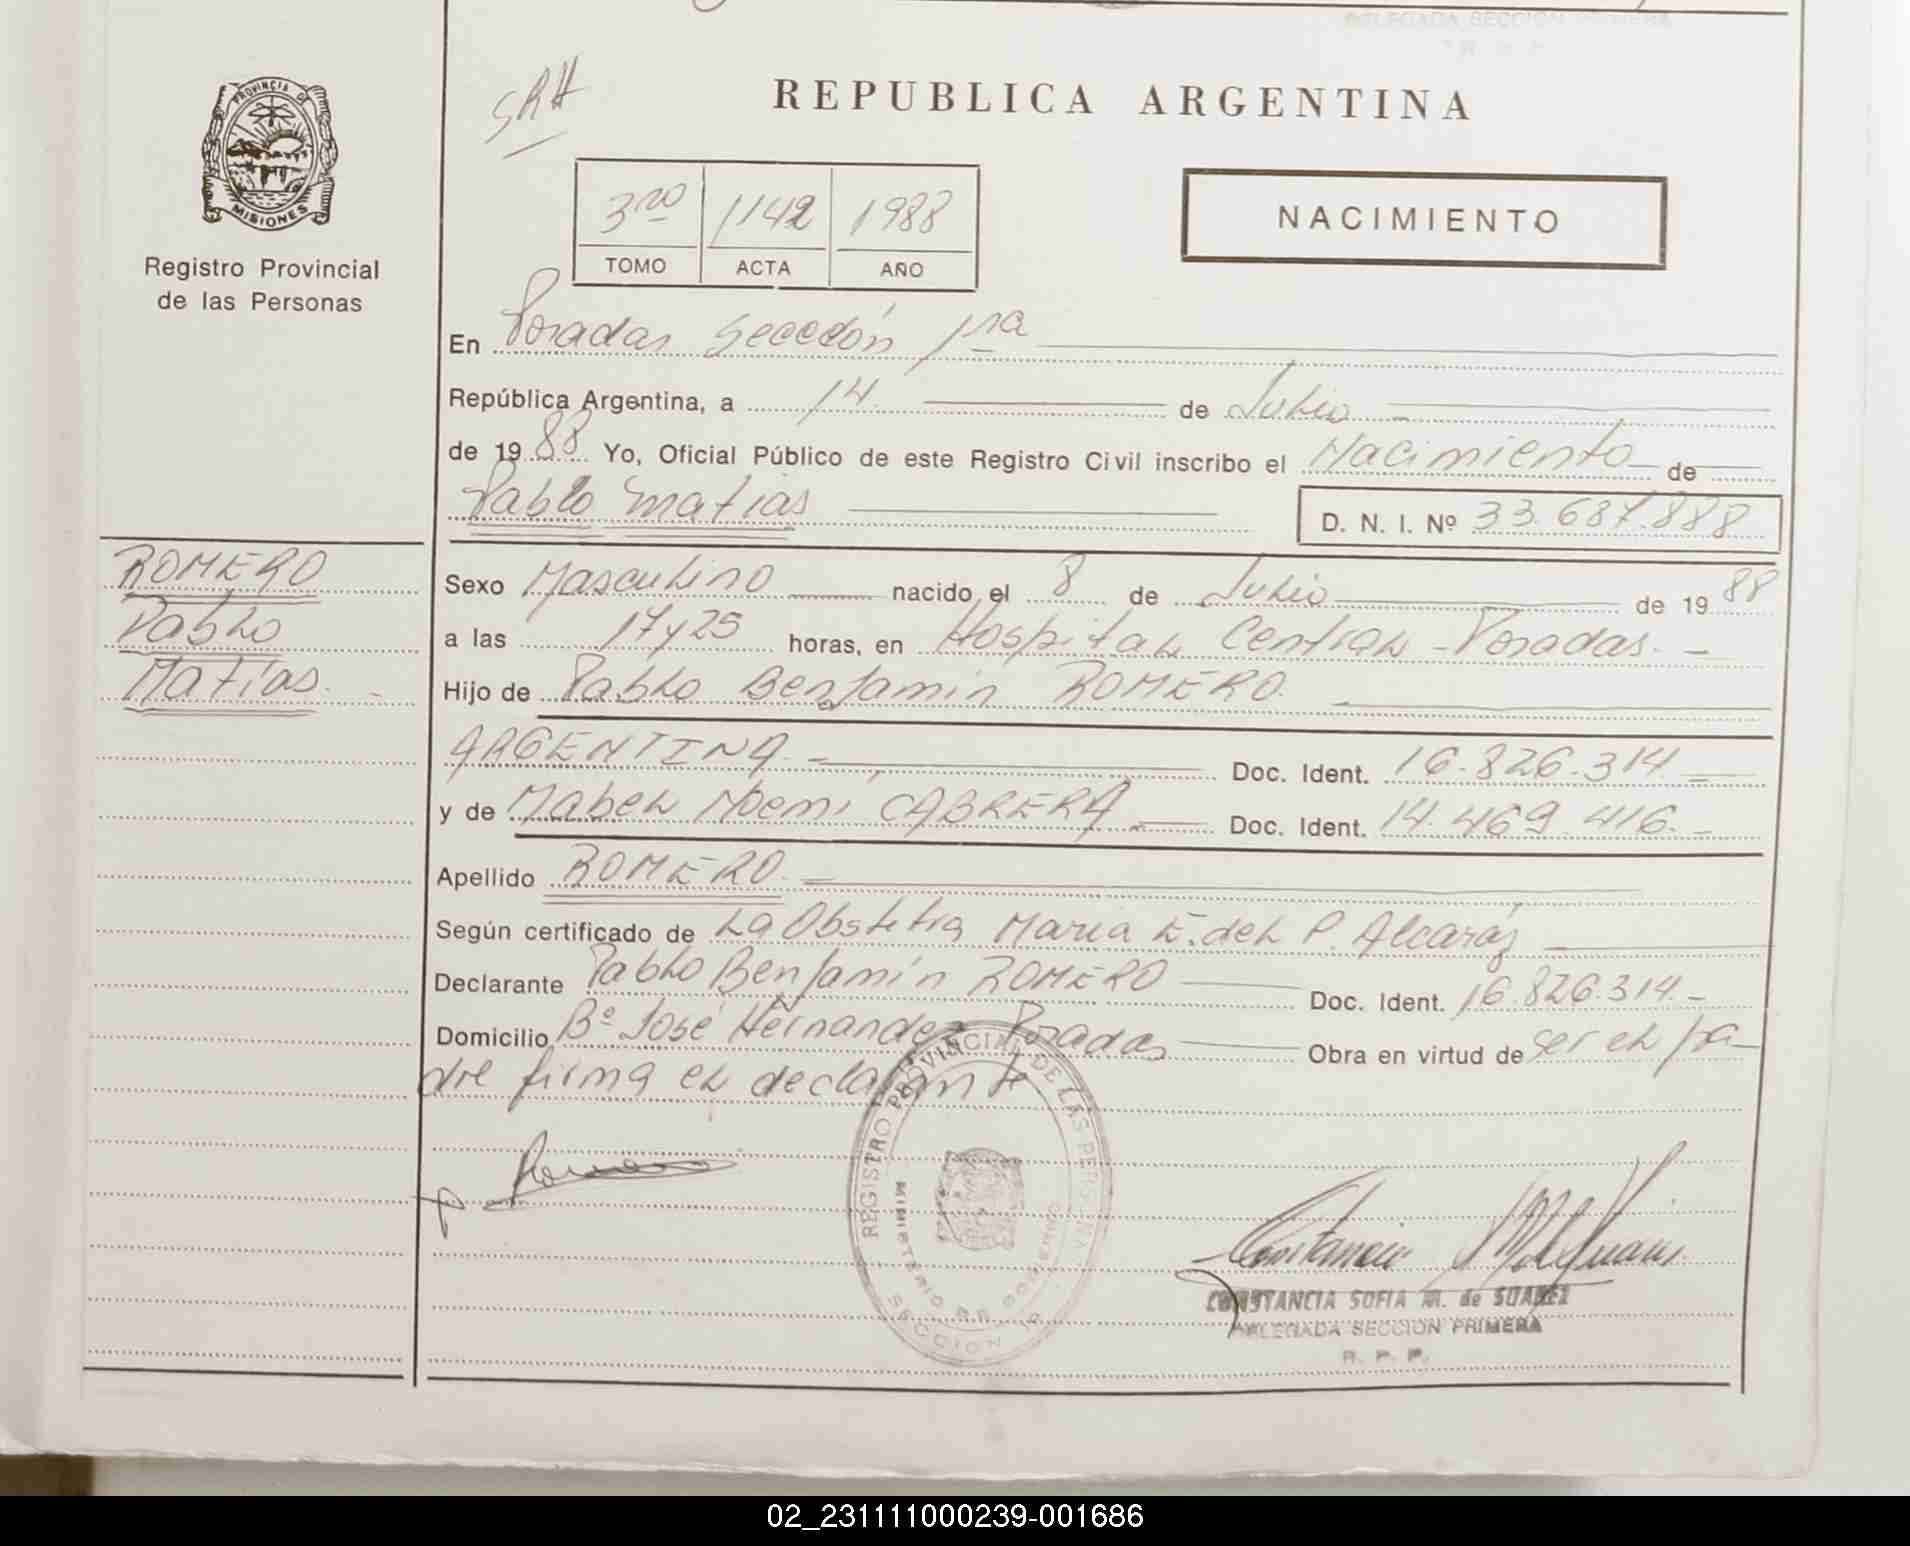 DELEGADA SECCION PRIMERA
SRH
REPUBLICA ARGENTINA
PROVINCIA DE
MISIONES
3ro 1142 1988
TOMO ACTA AÑO
NACIMIENTO
Registro Provincial
de las Personas
En Posadas Sección 1ra
República Argentina, a 14 de Julio
de 1988 Yo, Oficial Público de este Registro Civil inscribo el Nacimiento de
Pablo Matías
D. N. I. Nº 33.687.888
ROMERO
Pablo
Matías.
Sexo Masculino nacido el 8 de Julio de 1988
a las 17y25 horas, en Hospital Central - Posadas. -
Hijo de Pablo Benjamín ROMERO.
ARGENTINA. - Doc. Ident. 16.826.314
y de Mabel Noemí CABRERA Doc. Ident. 14.469.416. -
Apellido ROMERO. -
Según certificado de La Obstetra María E. del P. Alcaráz
Declarante Pablo Benjamín ROMERO Doc. Ident. 16.826.314. -
Domicilio Bº José Hernandez Posadas Obra en virtud de ser el pa-
dre firma el declarante
REGISTRO PROVINCIAL DE LAS PERSONAS
MINISTERIO DE GOBIERNO
SECCION 1ª
CONSTANCIA SOFIA M. de SUAREZ
DELEGADA SECCION PRIMERA
R. P. P.
02_231111000239-001686